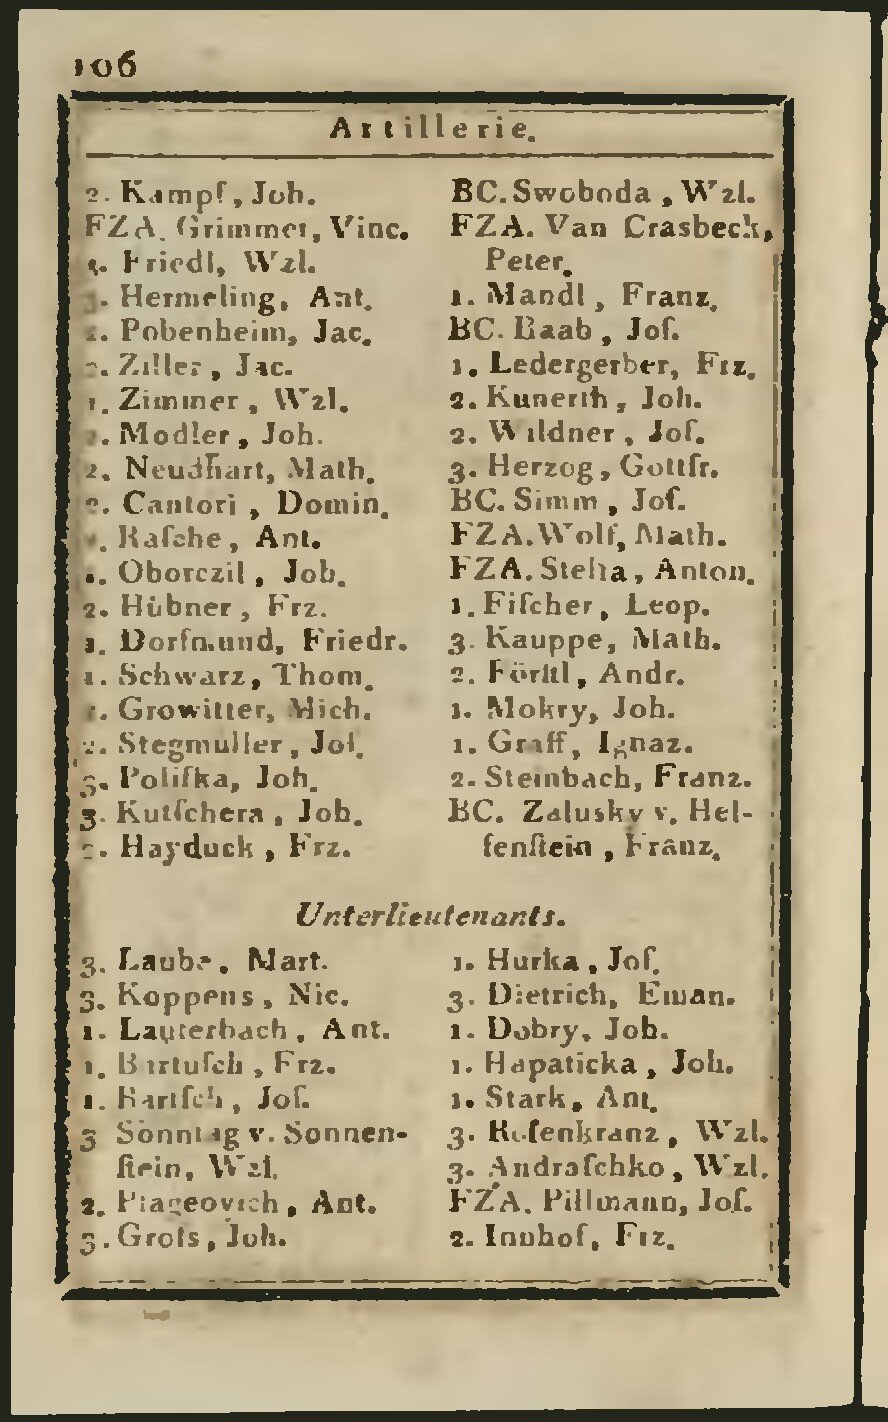 106
Artillerie.
2. Kampf, Joh.
FZA. Grimmer, Vinc.
Friedl, Wzl.
Hermeling, Ant.
Pobenheim, Jac.
Ziller, Jac.
1. Zimmer, Wzl.
Modler, Joh.
2. Neudhart, Math.
2. Cantori, Domin.
Raſche, Ant.
1. Oborczil, Joh.
2. Hübner, Frz.
1. Dorfmund, Friedr.
1. Schwarz, Thom.
Growitter, Mich.
2. Stegmuller, Joſ.
3. Poliſka, Joh.
3. Kutſchera, Joh.
Hayduck, Frz.
BC. Swoboda, Wzl.
FZA. Van Crasbeck,
Peter.
1. Mandl, Franz.
BC. Raab, Joſ.
1. Ledergerber, Frz.
2. Kunerth, Joh.
2. Wildner, Joſ.
3. Herzog, Gottfr.
BC. Simm, Joſ.
FZA. Wolf, Math.
FZA. Anton.
1. Fiſcher, Leop.
3. Kauppe, Math.
2. Andr.
1. Mokry, Joh.
1. Graff, Ignaz.
2. Steinbach, Franz.
BC. Zalusky v. Hel-
fenſtein, Franz.
Unterlieutenants.
3. Laube, Mart.
3. Koppens, Nic.
1. Lauterbach, Ant.
1. Bartuſch, Frz.
1. Bartſch, Joſ.
3 Sonntag v. Sonnen-
ſtein, Wzl.
2. Ant.
3. Groſs, Joh.
1. Hurka, Joſ.
3. Dietrich, Eman.
1. Dobry, Joh.
1. Hapaticka, Joh.
1. Stark, Ant.
3. Roſenkranz, Wzl.
3. Andraſchko, Wzl.
FZA. Pillmann, Joſ.
2. Innhof, Frz.